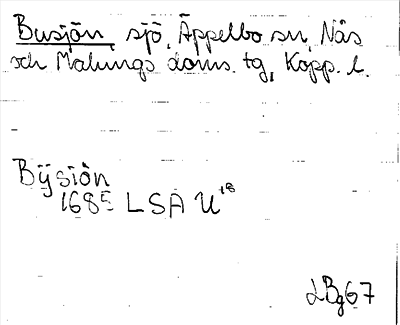 Busjön, sjö, Äppelbo sn, Näs
och Malungs doms. tg, Kopp. l.
Bÿsiön
1685 LSA U 18
LBg67